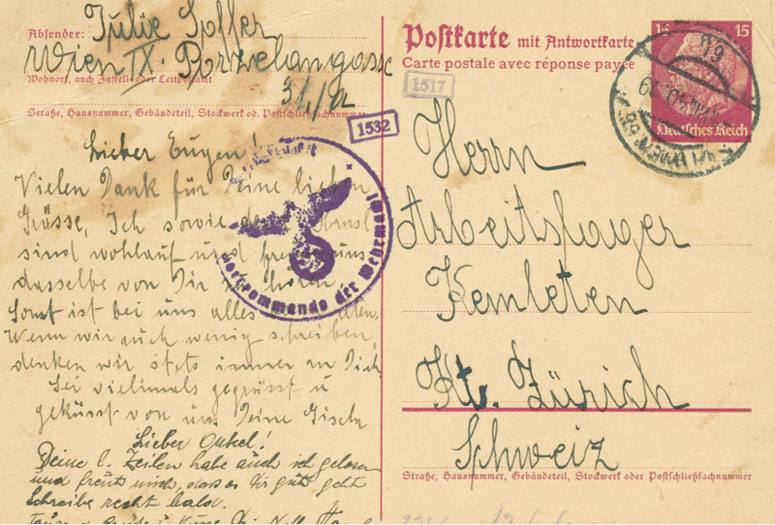 Absender: Julie Soffer
Wien IX. Porzelangasse
Wohnort, auch Zustell- oder Leitpostamt
37/12
Straße, Hausnummer, Gebäudeteil, Stockwerk od. Postschließfachnummer
1532
Lieber Eugen!
Vielen Dank für Deine lieben
Grüsse, Ich sowie
sind wohlauf und uns
dasselbe von Dir zu hören.
Sonst ist bei uns alles
Wenn wir auch wenig schreiben,
denken wir stets immer an Dich.
Sei vielmals gegrüsst u
geküsst von uns Deine
Lieber Onkel!
Deine l. Zeilen habe auch ich gelesen
und freut mich, dass es Dir gut geht
Schreibe recht bald.
der Wehrmacht
Postkarte mit Antwortkarte
Carte postale avec réponse payée
1517
15 15
Deutsches Reich
Herrn
Arbeitslager
Kemleten
Kt. Zürich
Schweiz
Straße, Hausnummer, Gebäudeteil, Stockwerk oder Postschließfachnummer